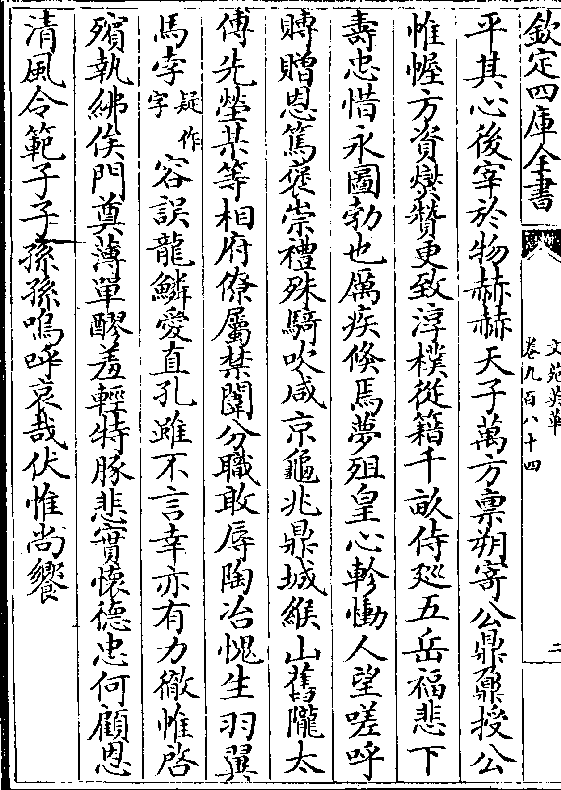 欽定四庫全書
文苑英華
卷九百八十四
二
平其心後宰於物赫赫天子萬方禀朔寄公鼎鼐授公
惟幄方資爕贊更致淳樸從籍千畝侍廵五岳福悲下
壽忠惜永圖勃也厲疾倏焉夢殂皇心軫慟人望嗟呼
賻贈恩篤褒崇禮殊騎吹咸京龜兆鼎城緱山舊隴太
傅先塋某等相府僚屬禁闈分職敢辱陶冶愧生羽翼
馬孛疑作字容誤龍鱗愛直孔雖不言幸亦有力徹惟啓
殯執紼俟門奠薄單醪羞輕特豚悲實懷德忠何顧恩
清風令範子子孫孫嗚呼哀哉伏惟尚饗